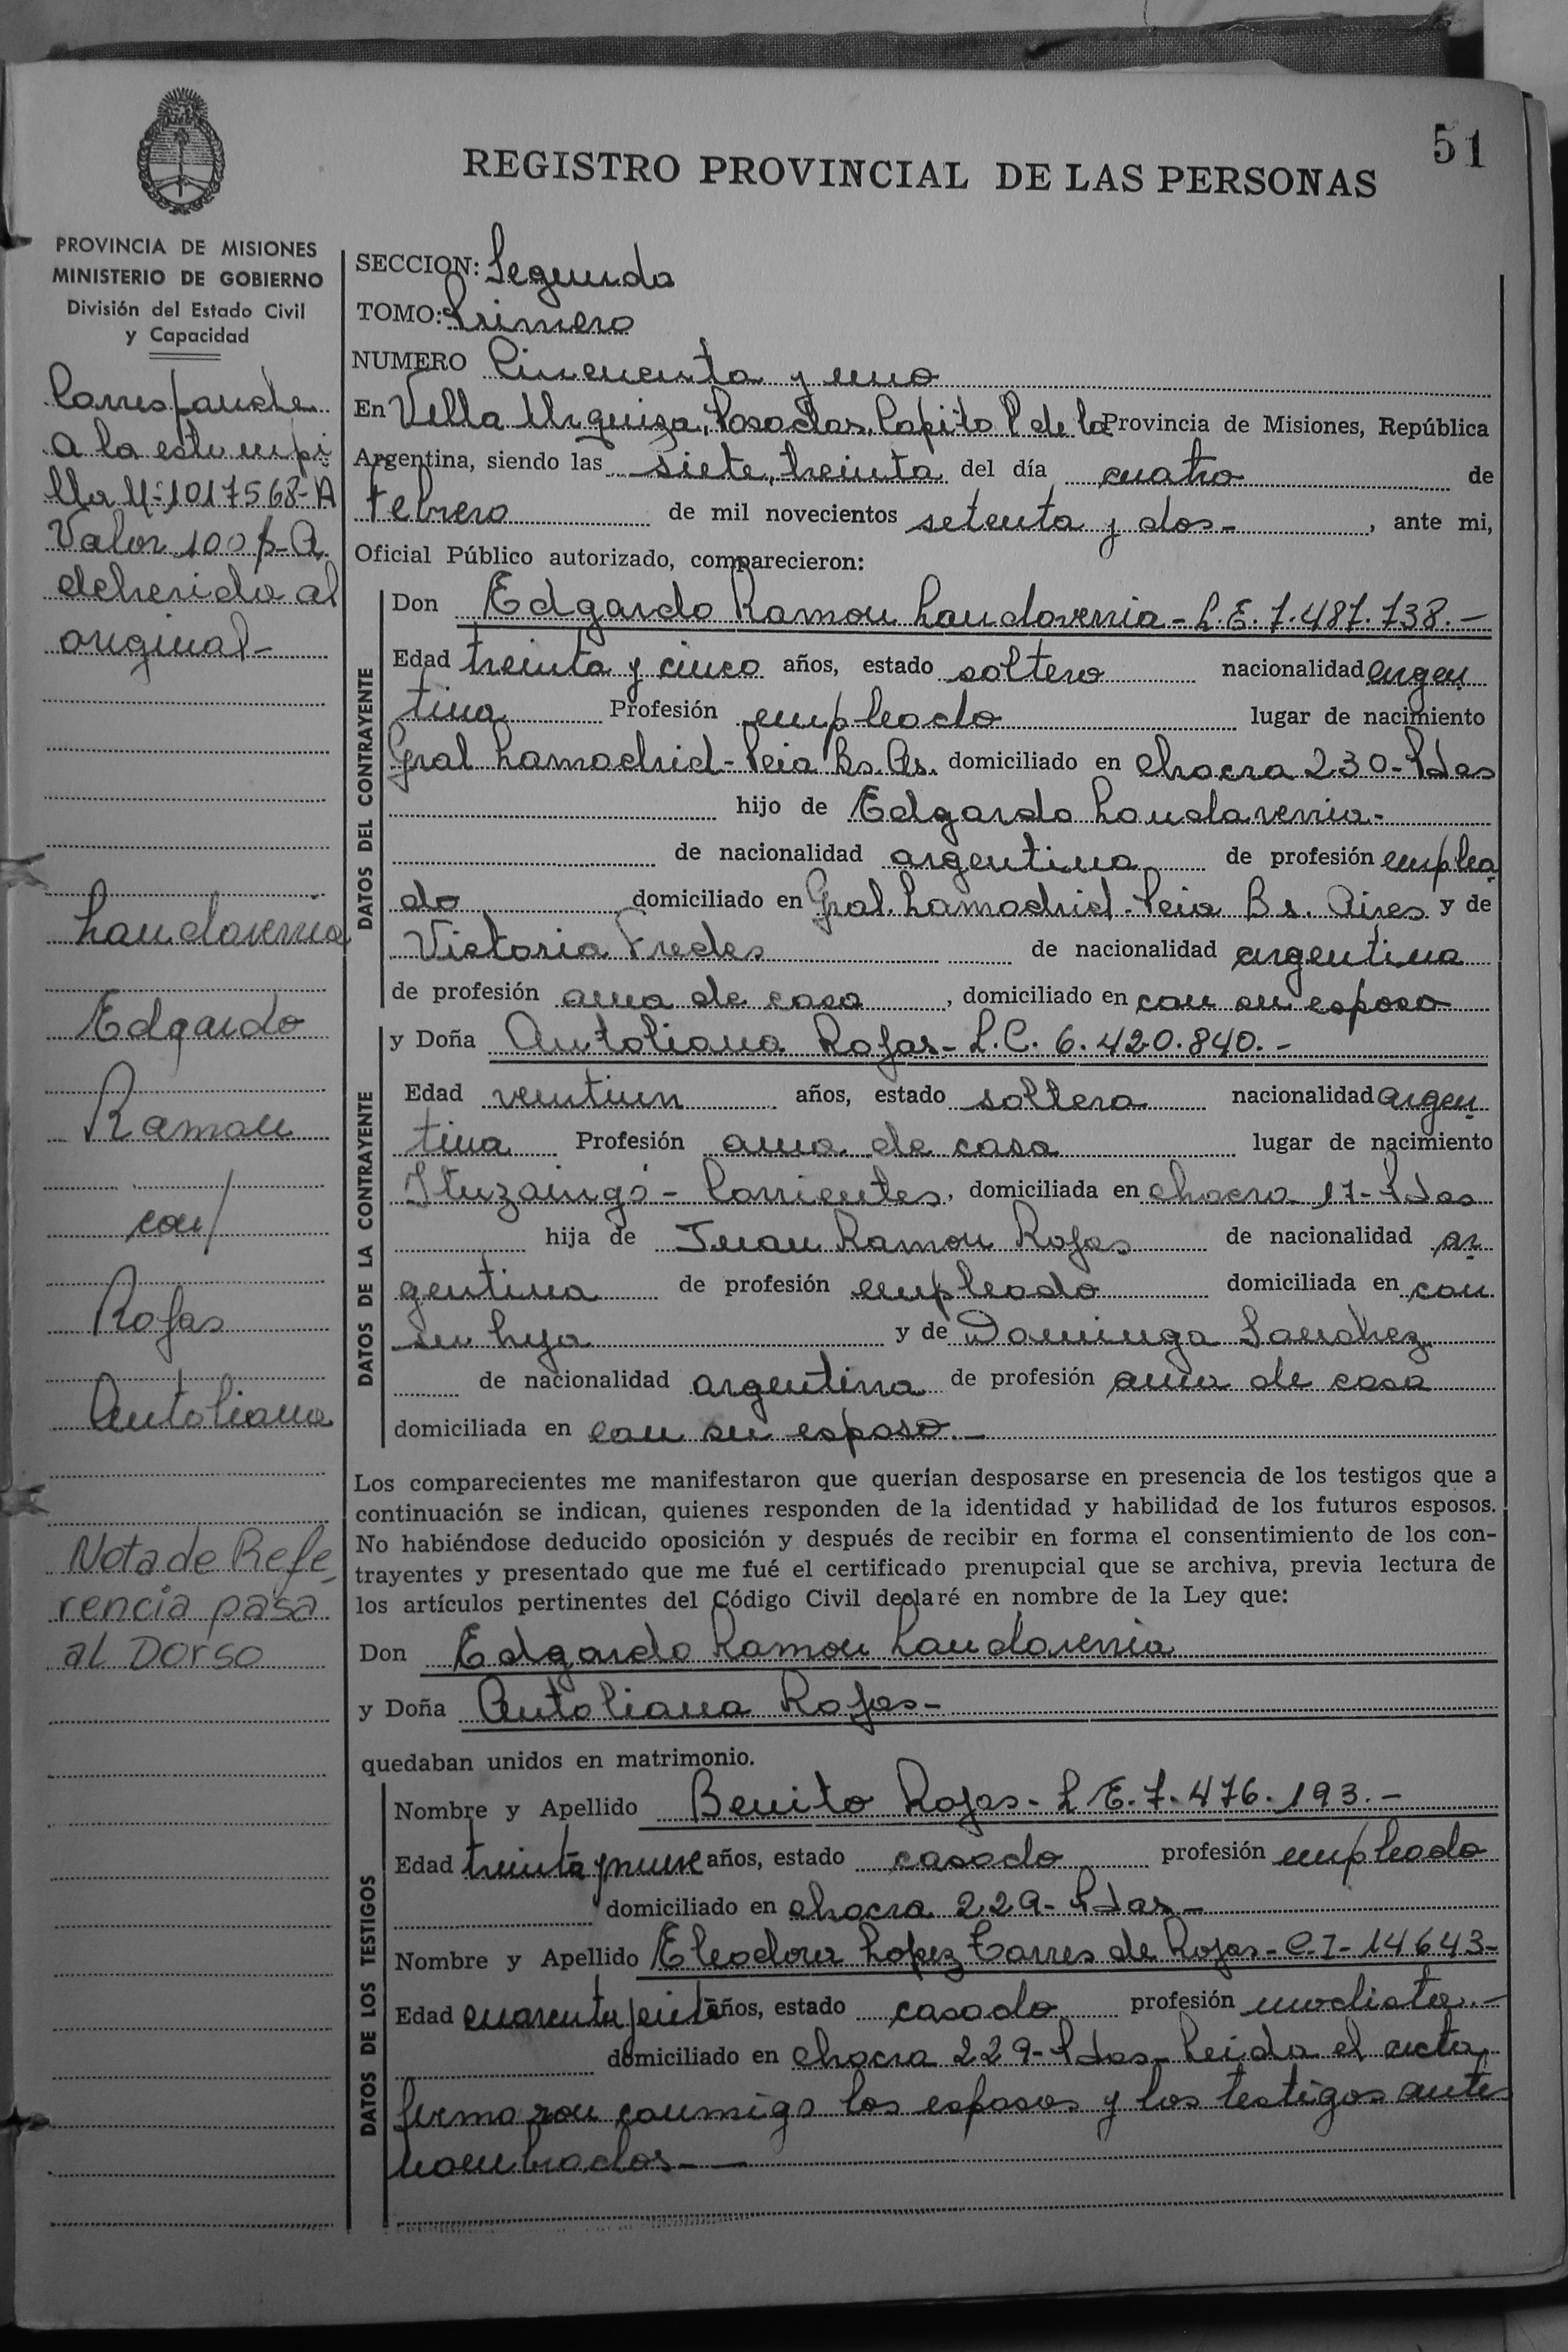 51
REGISTRO PROVINCIAL DE LAS PERSONAS
PROVINCIA DE MISIONES
MINISTERIO DE GOBIERNO
División del Estado Civil
y Capacidad
Corresponde
a la estampi
lla Nº 1017568-A
Valor 100 p-A
adherida al
original-
Landaverria
Edgardo
Ramon
con/
Rojas
Antoliana
Nota de Refe
rencia pasa
al Dorso
SECCION: Segunda
TOMO: Primero
NUMERO Cincuenta y uno
En Villa Urquiza, Posadas, Capital de la Provincia de Misiones, República
Argentina, siendo las siete, treinta del día cuatro de
febrero de mil novecientos setenta y dos- , ante mi,
Oficial Público autorizado, comparecieron:
DATOS DEL CONTRAYENTE
Don Edgardo Ramon Landaverria - L.E. 7.487.738.-
Edad treinta y cinco años, estado soltero nacionalidad argen
tina Profesión empleado lugar de nacimiento
Gral Lamadrid - Pcia Bs. As. domiciliado en chacra 230- Pdas
hijo de Edgardo Landaverria-
de nacionalidad argentina de profesión emplea
do domiciliado en Gral. Lamadrid. Pcia Bs. Aires y de
Victoria Fredes de nacionalidad argentina
de profesión ama de casa , domiciliado en con su esposo
DATOS DE LA CONTRAYENTE
y Doña Antoliana Rojas- L.C. 6.420.840.-
Edad ventiun años, estado soltera nacionalidad argen
tina Profesión ama de casa lugar de nacimiento
Ituzaingó - Corrientes, domiciliada en chacra 17- Pdas
hija de Juan Ramon Rojas de nacionalidad ar
gentina de profesión empleado domiciliada en con
su hija y de Dominga Sanchez
de nacionalidad argentina de profesión ama de casa
domiciliada en con su esposo.-
Los comparecientes me manifestaron que querían desposarse en presencia de los testigos que a
continuación se indican, quienes responden de la identidad y habilidad de los futuros esposos.
No habiéndose deducido oposición y después de recibir en forma el consentimiento de los con-
trayentes y presentado que me fué el certificado prenupcial que se archiva, previa lectura de
los artículos pertinentes del Código Civil declaré en nombre de la Ley que:
Don Edgardo Ramon Landaverria
y Doña Antoliana Rojas-
quedaban unidos en matrimonio.
DATOS DE LOS TESTIGOS
Nombre y Apellido Benito Rojas- L.E. 7.476.193.-
Edad treinta y nueve años, estado casado profesión empleado
domiciliado en chacra 229- Pdas-
Nombre y Apellido Eleodora Lopez Torres de Rojas- C.I- 14643-
Edad cuarenta años, estado casado profesión modista.-
domiciliado en chacra 229- Pdas- Leida el acta
firmaron conmigo los esposos y los testigos ante
nombrados-